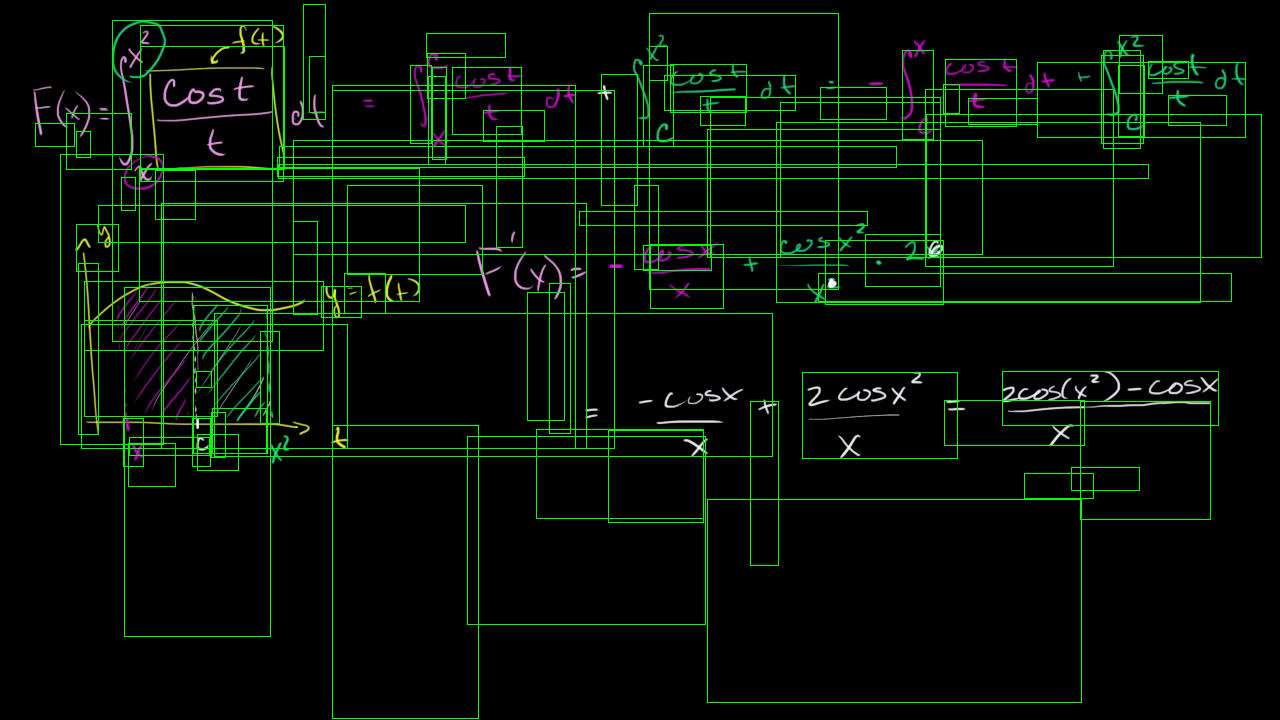 F(x) = ∫_x^{x²} cos t / t dt = ∫_x^c cos t / t dt + ∫_c^{x²} cos t / t dt = - ∫_c^x cos t / t dt + ∫_c^{x²} cos t / t dt
f(t)
F'(x) = - cos x / x + cos x² / x · 2
y
y = f(t)
= -cos x / x + 2 cos x² / x = 2cos(x²) - cos x / x
x c x² t